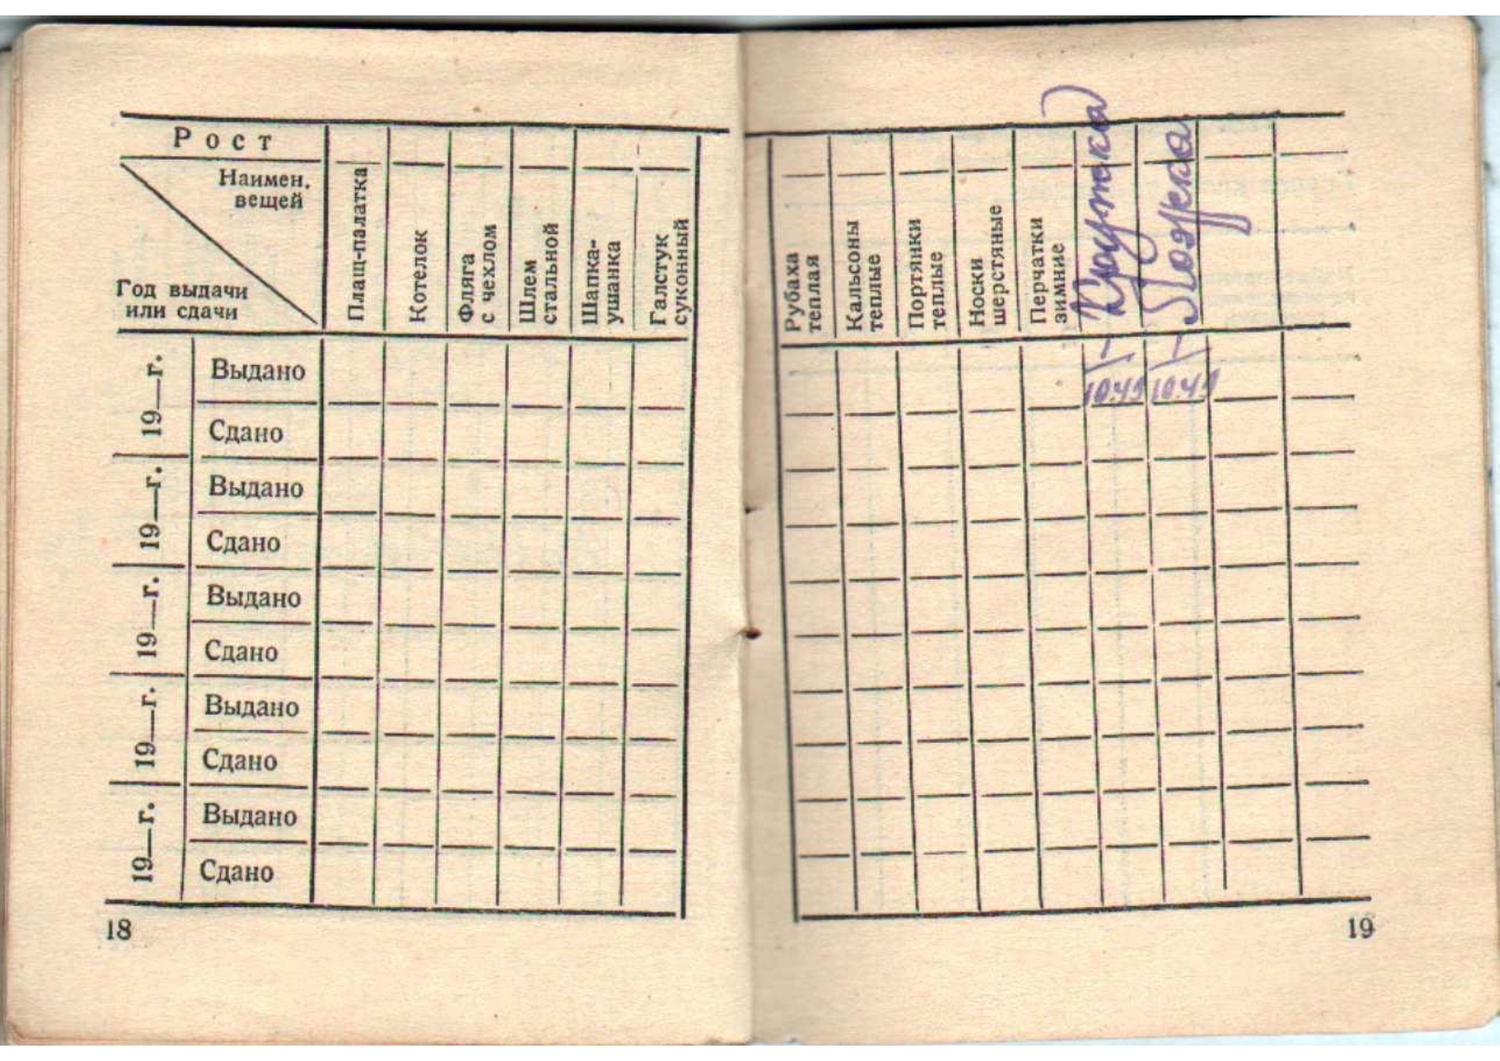 Рост
Наимен.
вещей
Год выдачи
или сдачи
Плащ-палатка
Котелок
Фляга
с чехлом
Шлем
стальной
Шапка-
ушанка
Галстук
суконный
19—г.
Выдано
Сдано
19—г.
Выдано
Сдано
19—г.
Выдано
Сдано
19—г.
Выдано
Сдано
19—г.
Выдано
Сдано
18
Рубаха
теплая
Кальсоны
теплые
Портянки
теплые
Носки
шерстяные
Перчатки
зимние
Кружка
Ложка
1
1
19